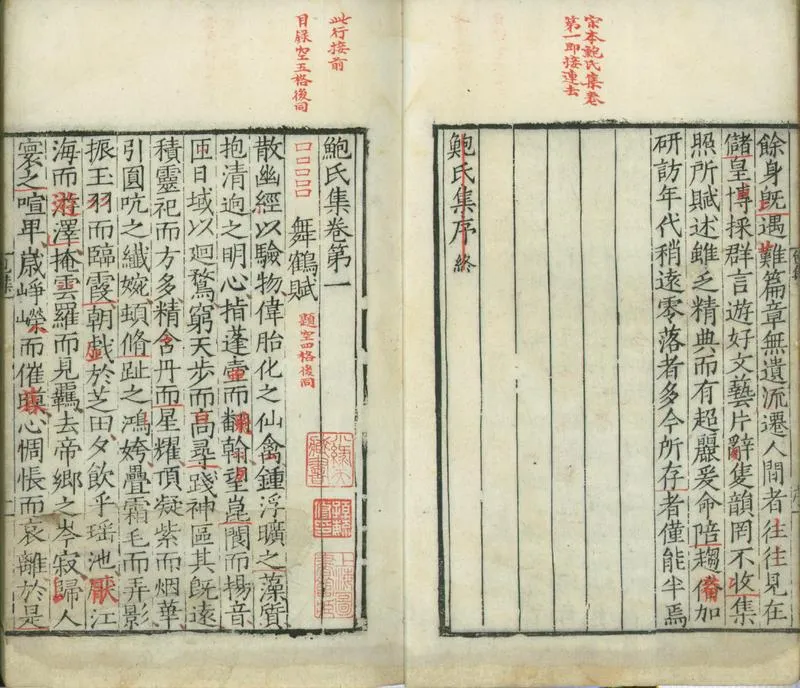 宋本鮑氏集卷
第一即接連去
餘身旣遇難篇章無遺流遷人間者往往見在
儲皇博採群言遊好文藝片辭隻韻罔不收集
照所賦述雖乏精典而有超麗爰命陪趨備加
研訪年代稍遠零落者多今所存者僅能半焉
鮑氏集序終
此行接前
目錄空五格後同
鮑氏集卷第一
口口口口口舞鶴賦
題空四格後同
小綠天藏書
孫毓修印
上海圖書館藏
散幽經以驗物偉胎化之仙禽鍾浮曠之藻質
抱清迥之明心指蓬壺而翻翰望崑閬而揚音
匝日域以迴騖窮天步而高尋踐神區其旣遠
積靈祀而方多精含丹而星耀頂凝紫而烟華
引圓吭之纖婉頓脩趾之鴻姱疊霜毛而弄影
振玉羽而臨霞朝戲於芝田夕飲乎瑤池厭江
海而游澤掩雲羅而見羈去帝鄉之岑寂歸人
寰之喧卑歲崢嶸而催暮心惆悵而哀離於是